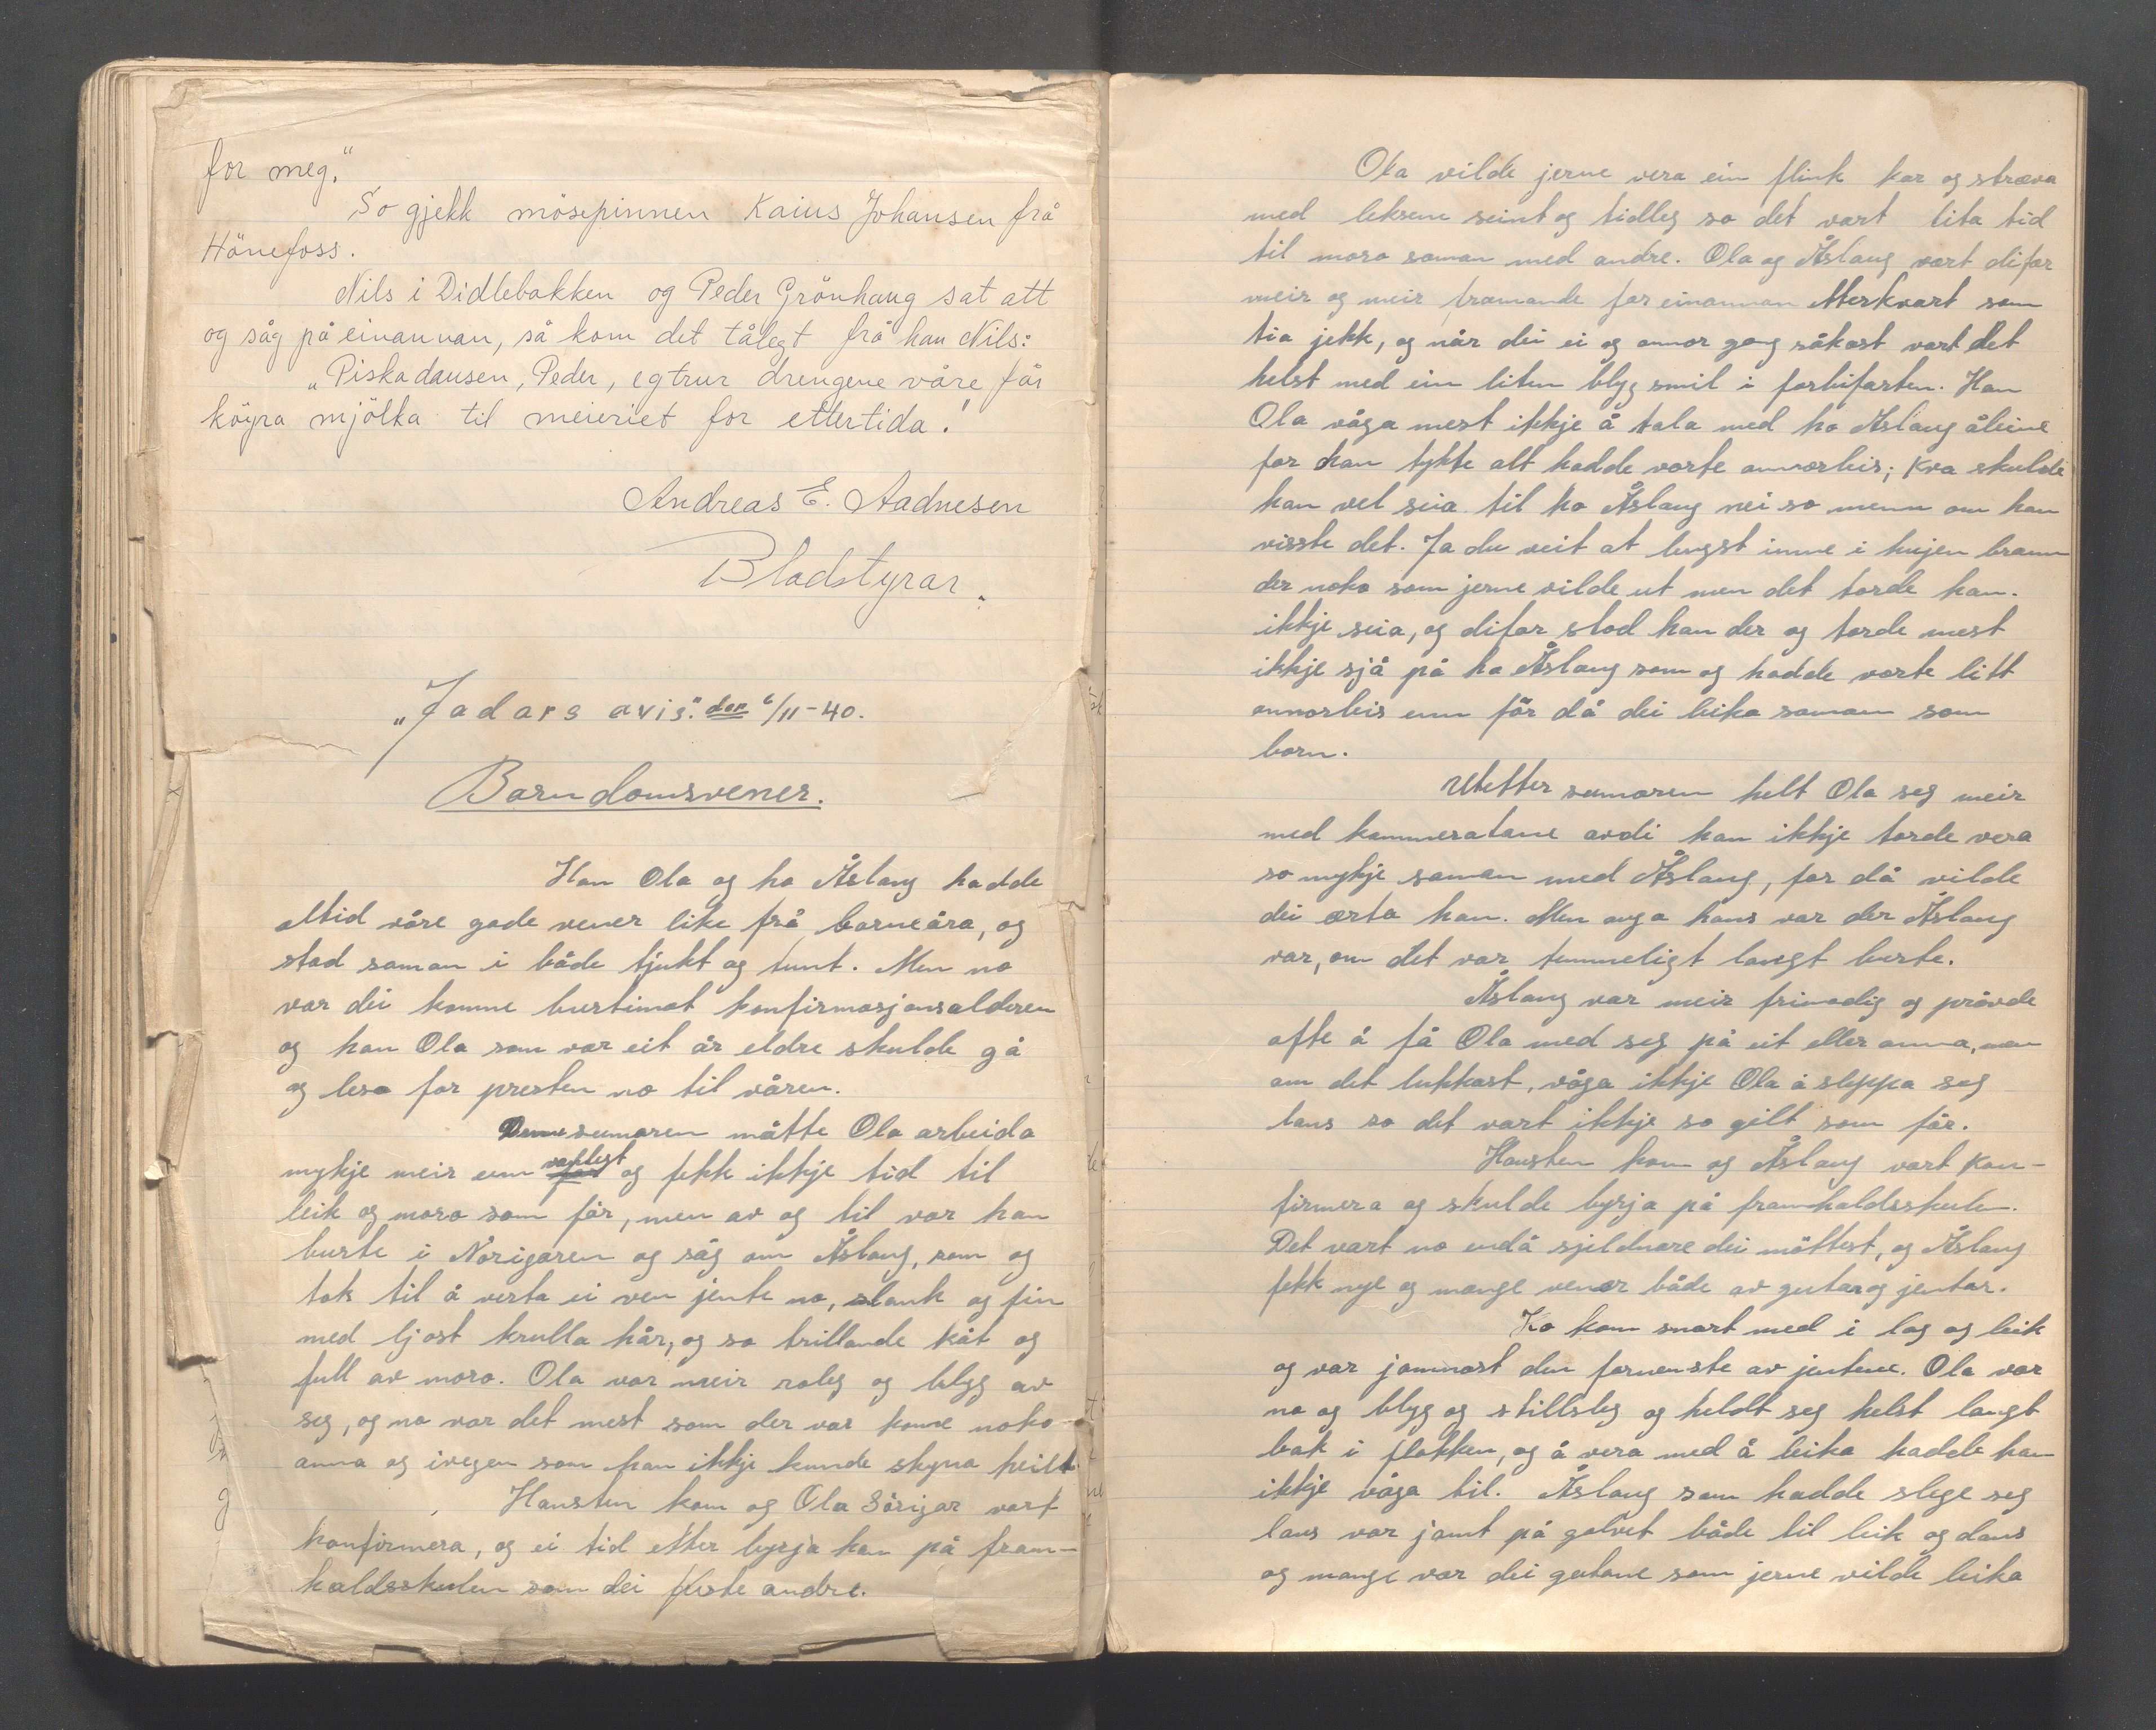 for meg."
So gjekk mösepinnen Kaius Johansen frå
Hönefoss.
Nils i Didlebakken og Peder Grönhaug sat att
og såg på einannan, så kom det tålegt frå han Nils:
"Piskadausen, Peder, eg trur drengene våre får
köyra mjölka til meieriet for ettertida!
Andreas E. Aadnesen
Bladstyrar.
"Jadars avis". den 6/11-40.
Barndomsvener.
Han Ola og ho Åslaug hadde
altid våre gode vener like frå barneåra, og
stod saman i både tjukt og tunt. Men no
var dei komne burtimot konfirmasjonsalderen
og han Ola som var eit år eldre skulde gå
og lesa for presten no til våren.
Denne sumaren måtte Ola arbeida
mykje meir enn vaklest og fekk ikkje tid til
leik og moro som för, men av og til var han
burte i Norigaren og såg om Åslaug, som og
tok til å verta ei ven jente no, slank og fin
med ljost krulla hår, og so trillande kåt og
full av moro. Ola var meir roleg og blyg av
seg, og no var det mest som der var kome noko
anna og ivegen som han ikkje kunde skyna heilt.
Hausten kom og Ola Sörigar vart
konfirmera, og ei tid etter byrja han på fram-
haldsskulen som dei fleste andre.
Ola vilde jerne vera ein flink kar og stræva
med leksene seint og tidleg so det vart lita tid
til moro saman med andre. Ola og Åslaug vart difor
meir og meir framande for einannan etterkvart som
tia jekk, og når dei ei og annor gong såkast vart det
helst med ein liten blyg smil i forbifarten. Han
Ola våga mest ikkje å tala med ho Åslaug åleine
for han tykte alt hadde vorte annorleis; kva skulde
han vel seia til ho Åslaug nei so menn om han
visste det. Ja du veit at lengst inne i hugen brann
der noko som jerne vilde ut men det torde han
ikkje seia, og difor stod han der og torde mest
ikkje sjå på ho Åslaug som og hadde vorte litt
annorleis enn för då dei leika saman som
born.
Utetter sumaren helt Ola seg meir
med kammeratane avdi han ikkje torde vera
so mykje saman med Åslaug, for då vilde
dei ærta han. Men auga hans var der Åslaug
var, om det var temmeligt langt burte.
Åslaug var meir frimodig og prövde
ofte å få Ola med seg på eit eller anna, men
om det lukkast, våga ikkje Ola å sleppa seg
laus so det vart ikkje so gilt som för.
Hausten kom og Åslaug vart kon-
firmera og skulde byrja på framhaldsskulen.
Det vart no endå sjeldnare dei möttest, og Åslaug
fekk nye og mange vener både av gutar og jentar.
Ho kom snart med i lag og leik
og var jamnast den fornemste av jentene. Ola var
no og blyg og stillsleg og heldt seg helst langt
bak i flokken, og å vera med å leika hadde han
ikkje våga til. Åslaug som hadde slege seg
laus var jamt på golvet både til leik og dans
og mange var dei gutane som jerne vilde leika